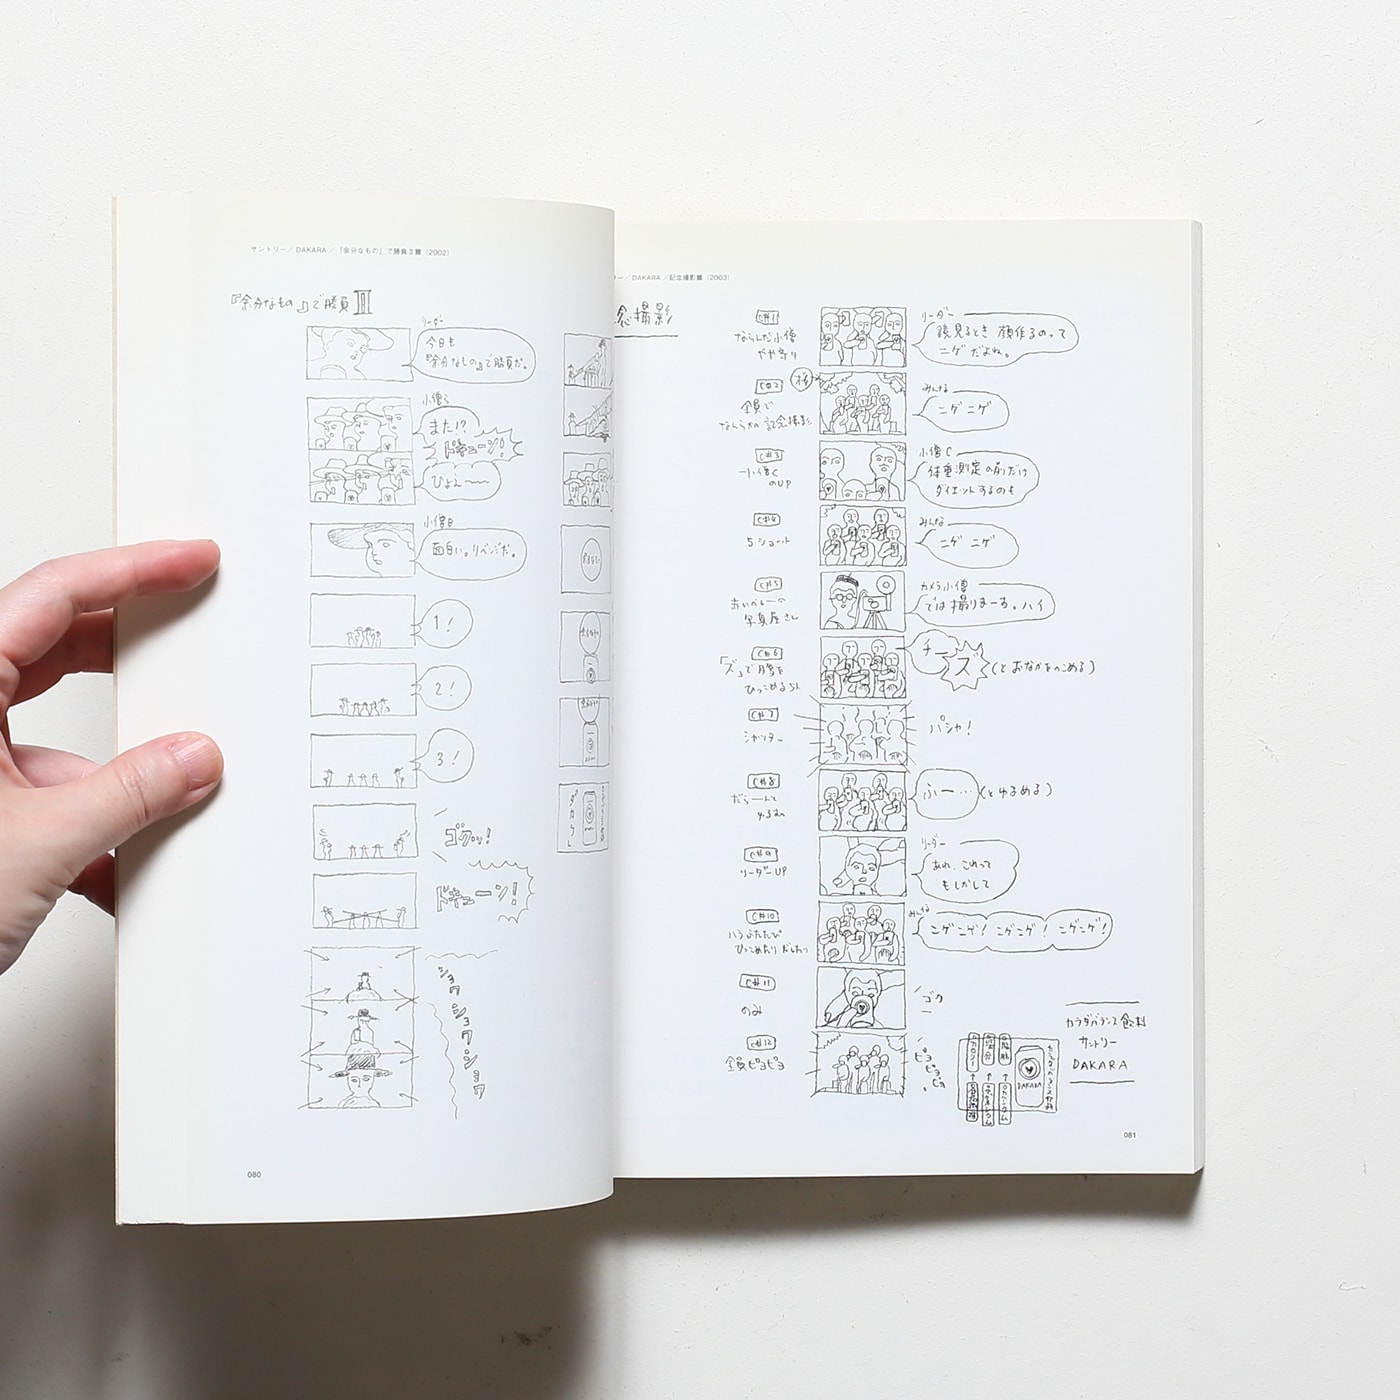 サントリー／DAKARA／「余分なもの」で勝負Ⅱ篇（2002）
『余分なもの』で勝負 Ⅱ
リーダー
今日も
『余分なもの』で勝負だ。
小僧ら
また!?
ドキューン!
ひょえ〜〜
小僧B
面白い。リベンジだ。
1!
2!
3!
ゴクッ!
ドキューン!
ショワ
ショワ
ショワ
080
ー／DAKARA／記念撮影篇（2003）
念撮影
C#1
ならんだ小僧
やや寄り
リーダー
鏡見るとき 顔作るのって
ニゲだよね。
C#2
桜
全員で
なんらかの記念撮影
みんな
ニゲニゲ
C#3
小僧C
のUP
小僧C
体重測定の前だけ
ダイエットするのも
C#4
5ショット
みんな
ニゲ ニゲ
C#5
赤いベレーの
写真屋さん
カメラ小僧
では撮りまーす。ハイ
C#6
「ズ」で腹を
ひっこめる5人
チー
ズ
(とおなかをへこめる)
C#7
シャッター
パシャ!
C#8
だらーんと
ゆるむ
ふー…
(とゆるめる)
C#9
リーダーUP
リーダー
あれ、これって
もしかして
C#10
ハラふたたび
ひっこめたり だしたり
みんな
ニゲニゲ! ニゲニゲ! ニゲニゲ!
C#11
のみ
ゴク
C#12
全員ピヨピヨ
ピヨ
ピヨ
ピヨ
カラダバランス飲料
サントリー
DAKARA
DAKARA
081